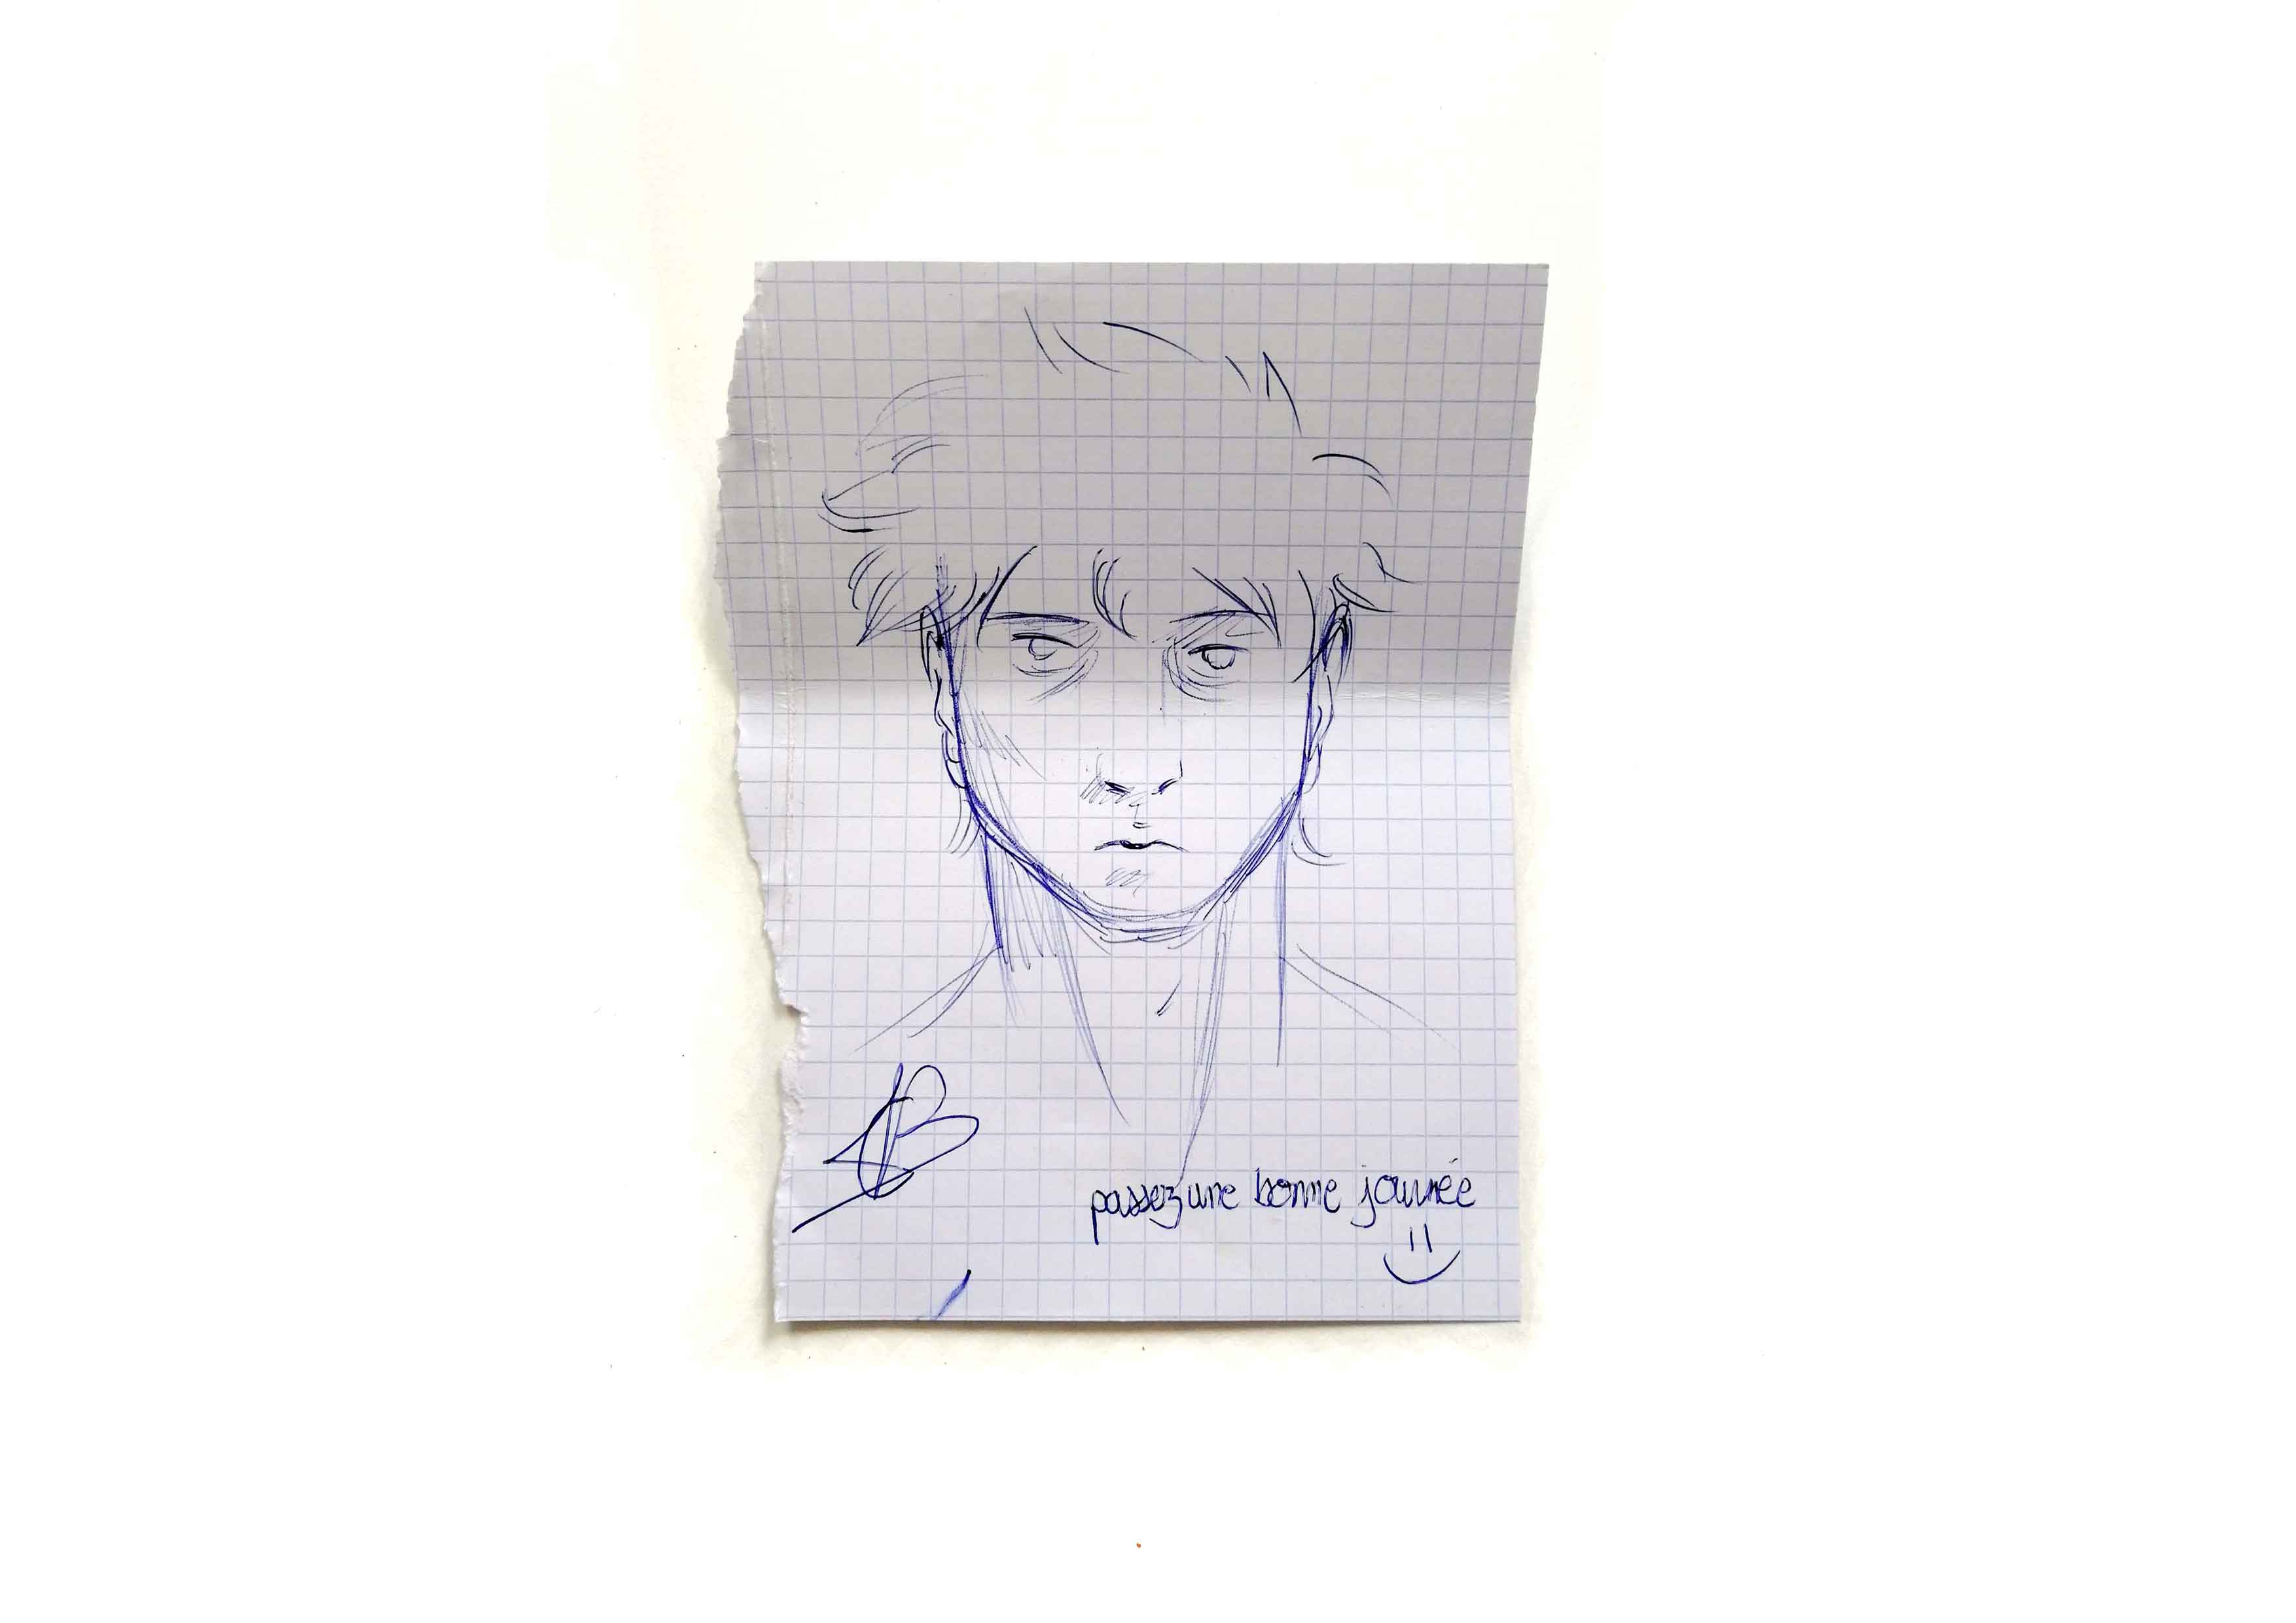 passez une bonne journée